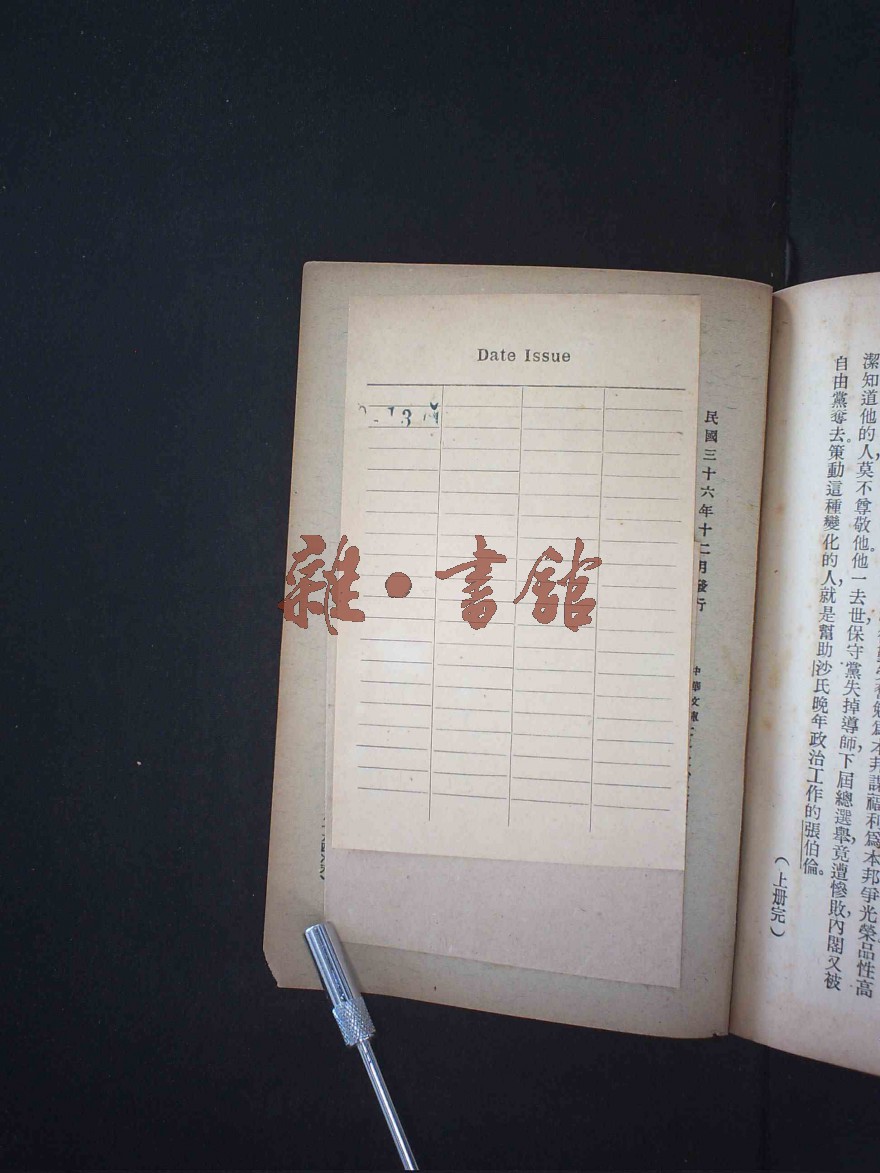 潔知道他的人,莫不尊敬他。他一去世,保守黨失掉導師,下屆總選舉,竟遭慘敗,內閣又被
自由黨奪去。策動這種變化的人,就是幫助沙氏晚年政治工作的張伯倫。
(上册完)
民國三十六年十二月發行
中華文庫
Date Issue
雜·書館